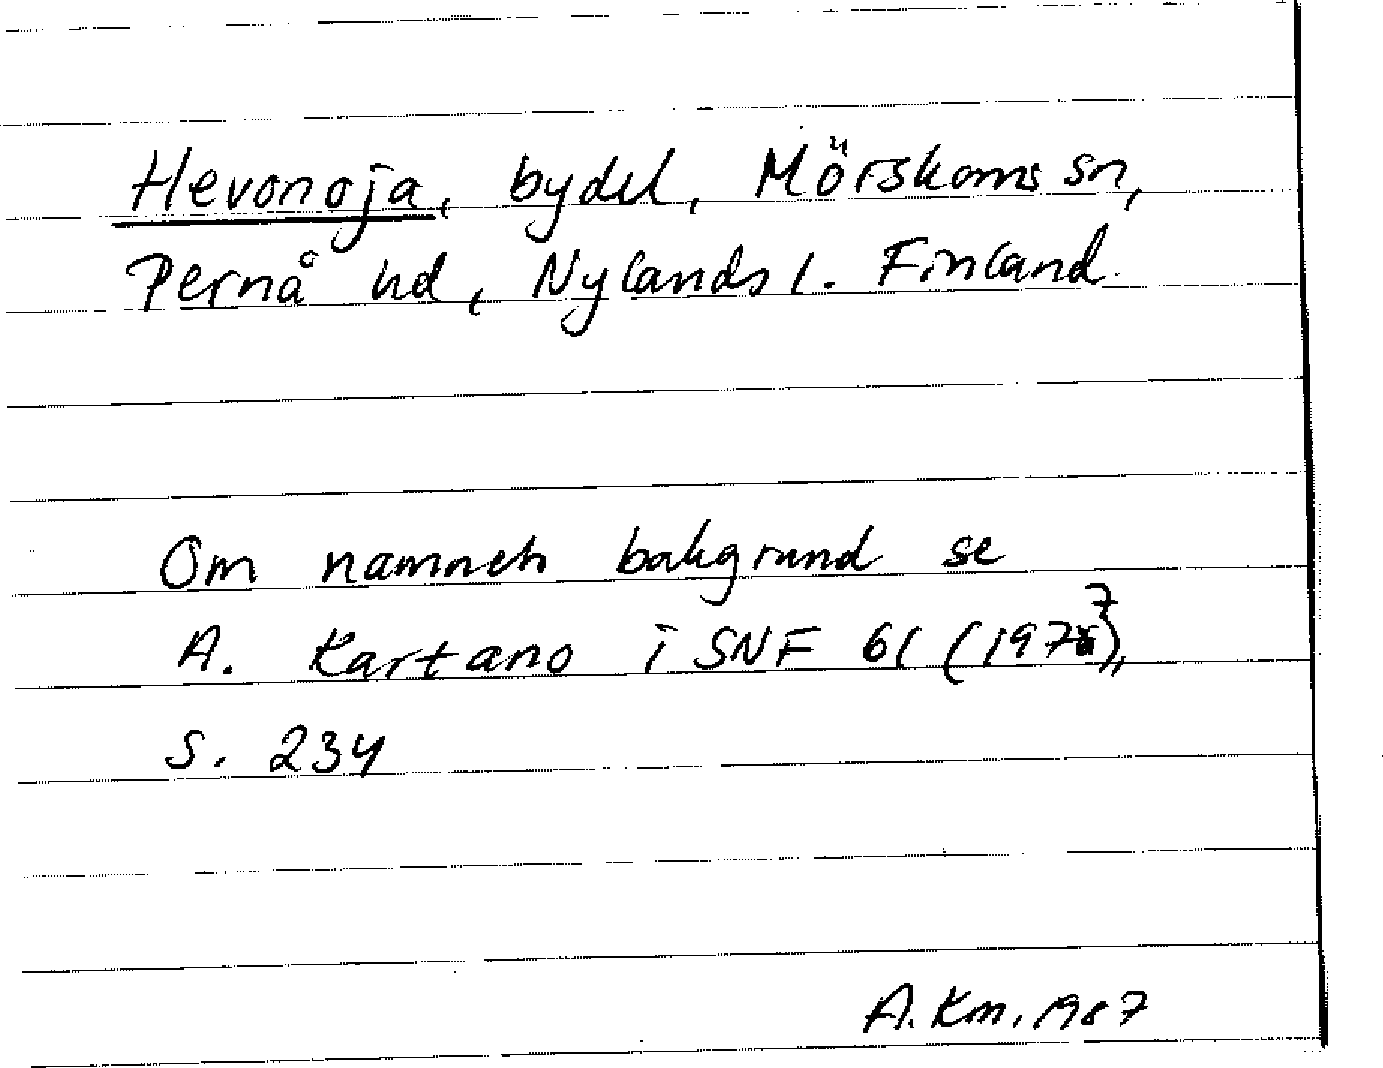 Hevonoja, bydel, Mörskoms sn,
Pernå hd, Nylands l. Finland.
Om namnets bakgrund se
A. Kartano i SNF 61 (1977),
s. 234
A. Km. 1987